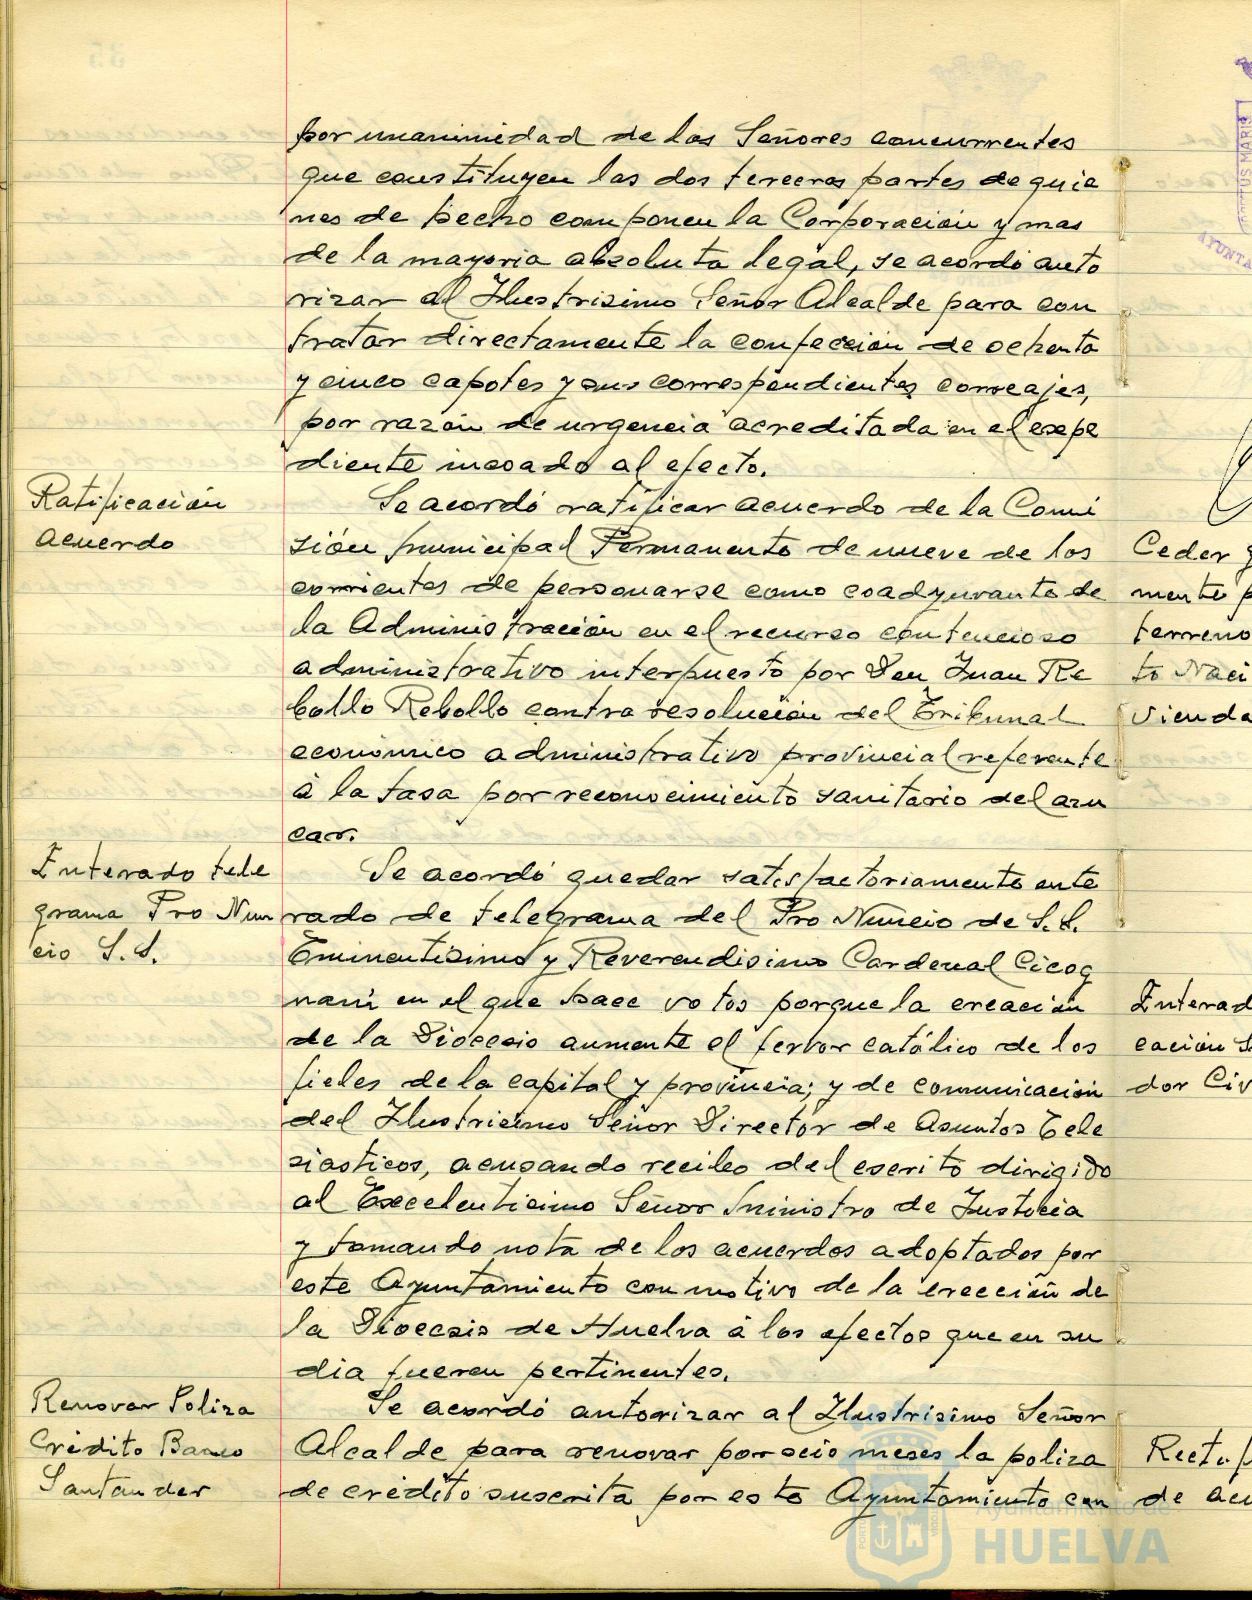 por unanimidad de los Señores concurrentes
que constituyen las dos terceras partes de quie
nes de hecho componen la Corporación y mas
de la mayoria absoluta legal, se acordó auto
rizar al Ilustrisimo Señor Alcalde para con
tratar directamente la confección de ochenta
y cinco capotes y sus correspondientes correajes,
por razón de urgencia acreditada en el expe
diente incoado al efecto.
Ratificación
acuerdo
Se acordó ratificar acuerdo de la Comi
sión municipal Permanente de nueve de los
corrientes de personarse como coadyuvante de
la Administración en el recurso contencioso
administrativo interpuesto por Don Juan Re
bollo Rebollo contra resolución del Tribunal
económico administrativo provincial referente
á la tasa por reconocimiento sanitario del azu
car.
Enterado tele
grama Pro Nun
cio S.S.
Se acordó quedar satisfactoriamente ente
rado de telegrama del Pro Nuncio de S.S.
Eminentisimo y Reverendisimo Cardenal Cicog
nani en el que hace votos porque la creación
de la Diocesis aumente el fervor católico de los
fieles de la capital y provincia; y de comunicación
del Ilustrisimo Señor Director de Asuntos Ecle
siasticos, acusando recibo del escrito dirigido
al Excelentisimo Señor Ministro de Justicia
y tomando nota de los acuerdos adoptados por
este Ayuntamiento con motivo de la erección de
la Diocesis de Huelva á los efectos que en su
dia fueren pertinentes.
Renovar Poliza
Crédito Banco
Santander
Se acordó autorizar al Ilustrisimo Señor
Alcalde para renovar por seis meses la poliza
de crédito suscrita por este Ayuntamiento con
Ceder g
mente p
terreno
to Naci
vienda
Enterad
cación S
dor Civ
Rectif
de acu
Ayuntamiento de
HUELVA
35